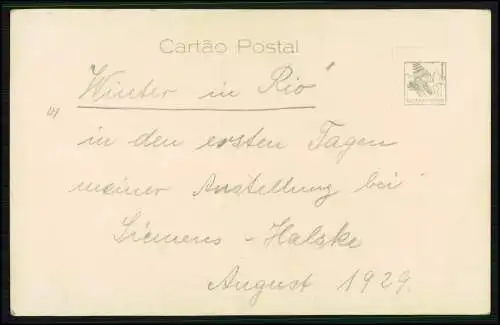 Cartão Postal
Winter in Rio
in den ersten Tagen
meiner Anstellung bei
Siemens - Halske
August 1929.